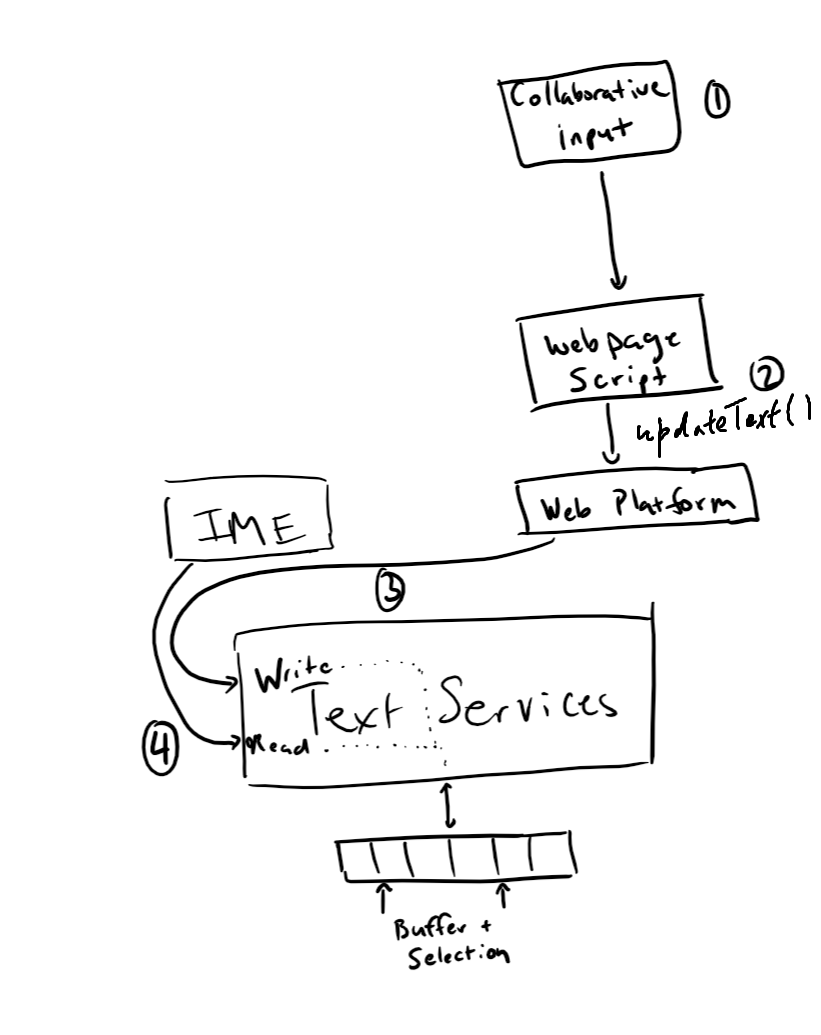 Collaborative
input
①
Webpage
Script
②
updateText()
Web Platform
IME
③
Write
Text Services
④
Read
Buffer +
Selection